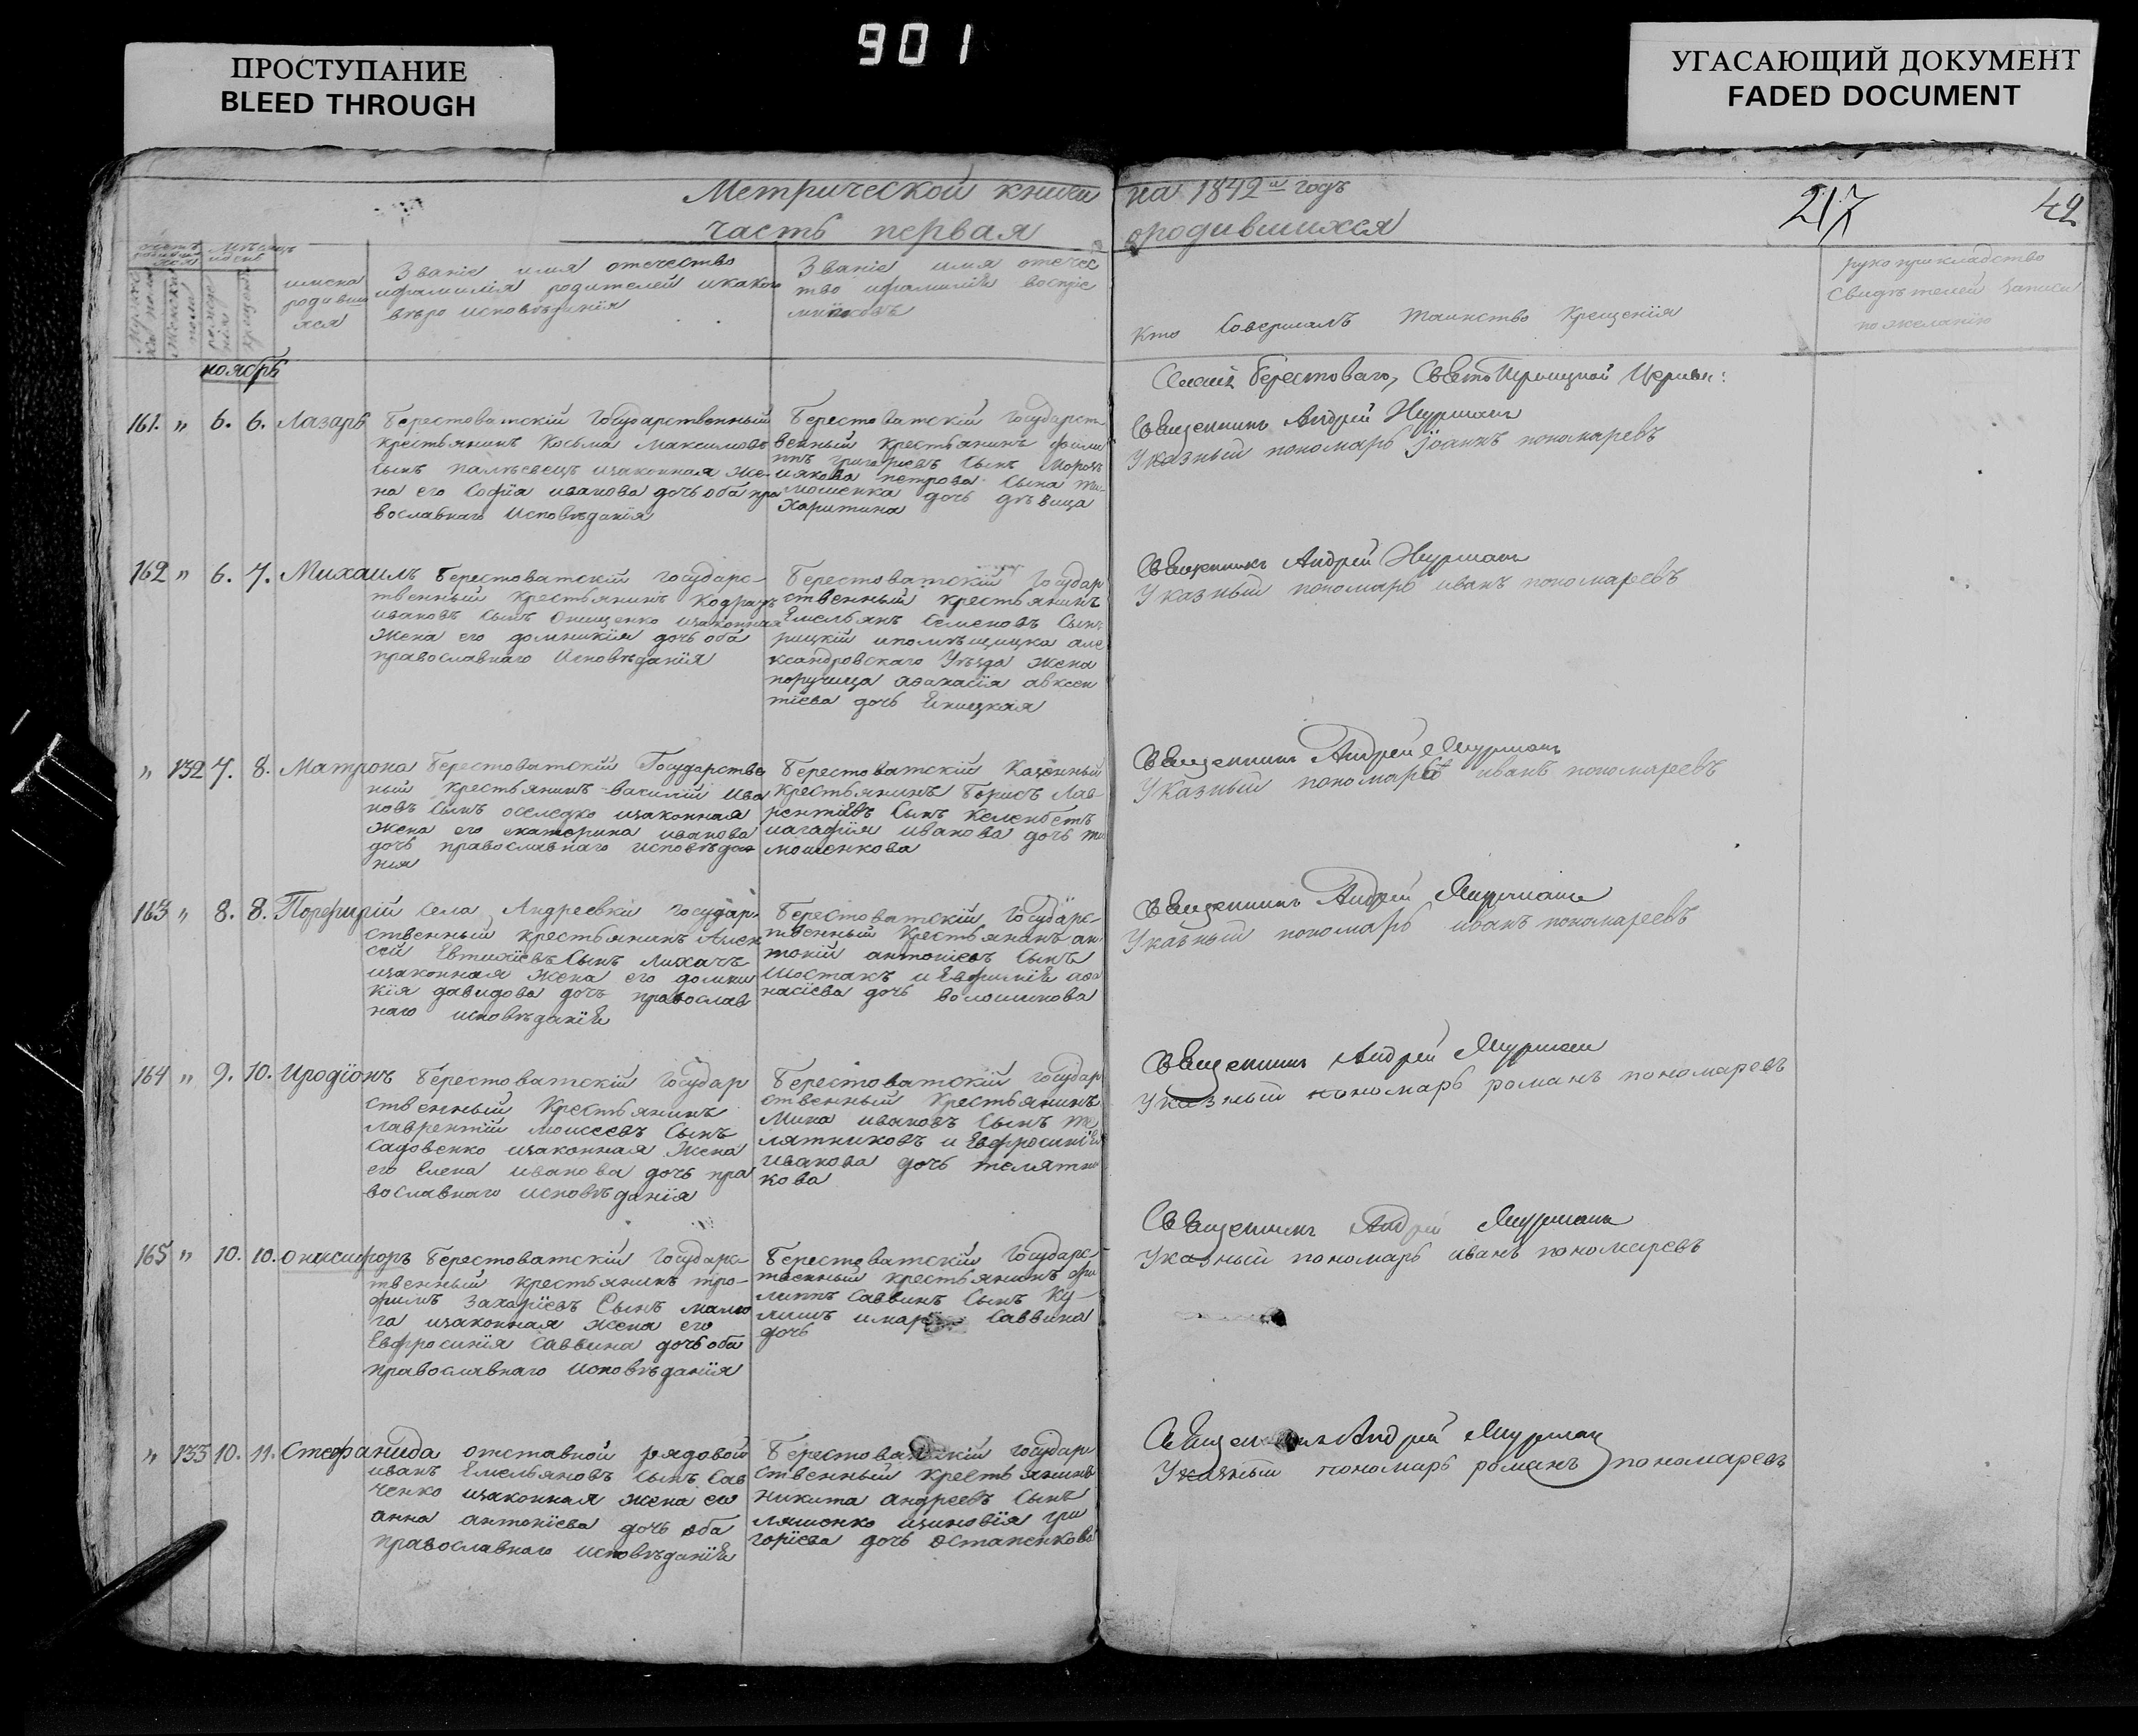 901
ПРОСТУПАНИЕ
BLEED THROUGH
УГАСАЮЩИЙ ДОКУМЕНТ
FADED DOCUMENT
Метрической книги
часть первая
на 1842й годъ
о родившихся
217
42
имена
родивши
хся
Званіе имя отечество
ифамилія родителей икакого
вѣро исповѣданія
Званіе имя отечес
тво ифамилія воспріе
мниковъ
Кто Совершалъ Таинство Крещенія
рукоприкладство
Свидѣтелей записи
пожеланію
ноябрь
161. " 6. 6. Лазарь
Берестоватскій Государственный
крестьянинъ Косьма Максимовъ
Сынъ палѣевецъ изаконная же-
на его Софія иванова дочь оба пра
вославнаго Исповѣданія
Берестоватскій Государст
венный крестьянинъ фили
ппъ григорьевъ Сынъ Морозъ
иякова петрова Сына ти-
мошенка дочь дѣвица
Харитина
Берестоваго, Свято Троицкой Церкви:
Священникъ Андрей
Указный пономарь Іоаннъ пономаревъ
162 " 6. 7. Михаилъ
Берестоватскій государс-
твенный крестьянинъ Кодратъ
ивановъ Сынъ Онищенко изаконная
Жена его домникія дочь оба
православнаго Исповѣданія
Берестоватскій Государ
ственный крестьянинъ
Емельянъ Семеновъ Сынъ
рицкій ипомѣщицка але
ксандровскаго Уѣзда жена
поручица афанасія авксен
тіева дочь
Священникъ Андрей
Указный пономарь иванъ пономаревъ
" 132 7. 8. Матрона
Берестоватскій Государстве
ный крестьянинъ василій ива
новъ Сынъ оселедко изаконная
Жена его екатерина иванова
дочь православнаго исповѣда
нія
Берестоватскій Казенный
крестьянинъ Борисъ Лав-
рентіевъ Сынъ Келенбетъ
иагафія иванова дочь ти
мошенкова
Священникъ Андрей
Указный пономарь иванъ пономаревъ
163 " 8. 8. Порфирій
Села Андреевки государ-
ственный крестьянинъ Алек
сей Евтихіевъ Сынъ лихачъ
изаконная жена его домни
кія давидова дочъ православ
наго исповѣданія
Берестоватскій Государс-
твенный Крестьянинъ ан-
тоній антоніевъ Сынъ
Шостакъ и Евфимія афа
насіева дочь волошинова
Священникъ Андрей
Указный пономарь иванъ пономаревъ
164 " 9. 10. Иродіонъ
Берестоватскій государ
ственный Крестьянинъ
лаврентій моисеевъ Сынъ
садовенко изаконная Жена
его елена иванова дочь пра
вославнаго исповѣданія
Берестоватскій государ
ственный Крестьянинъ
Мина ивановъ Сынъ те
лятниковъ и Евфросинія
иванова дочь телятни
кова
Священникъ Андрей
Указный пономарь романъ пономаревъ
165 " 10. 10. онисифоръ
Берестоватскій Государс-
твенный Крестьянинъ тро-
фимъ Захаріевъ Сынъ
изаконная жена его
Евфросинія Саввина дочь оба
православнаго Исповѣданія
Берестоватскій Государс-
твенный крестьянинъ фи
липпъ Саввинъ Сынъ Ку-
лишъ Саввина
дочь
Священникъ Андрей
Указный пономарь иванъ пономаревъ
" 133 10. 11. Стефанида
отставной рядовой
иванъ Емельяновъ Сынъ Сав
ченко изаконная жена его
анна антоніева дочь оба
православнаго исповѣданія
Берестоватскій государ
ственный крестьянинъ
никита андреевъ Сынъ
ляшенко изиновія гри
горіева дочь остапенкова
Священникъ Андрей
Указный пономарь романъ пономаревъ